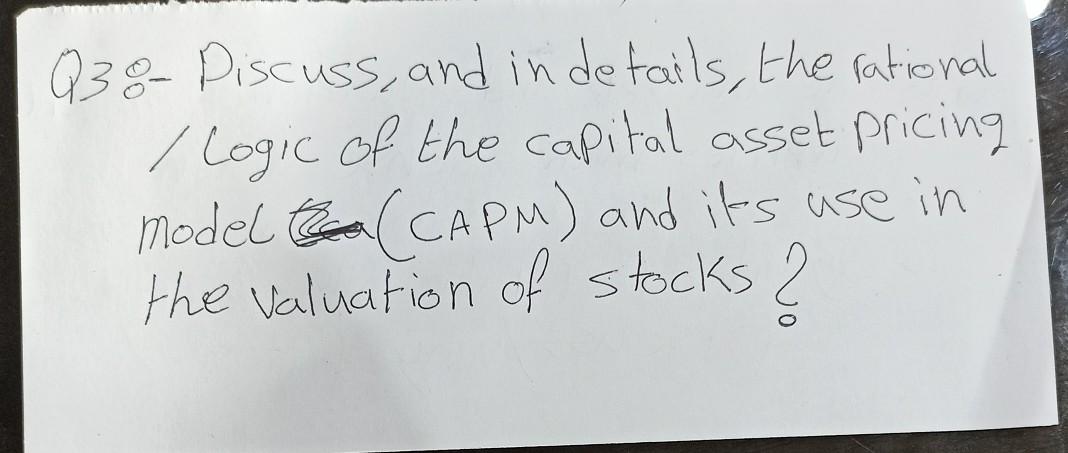 Q3:- Discuss, and in details, the rational
/ Logic of the capital asset pricing
model (CAPM) and it's use in
the valuation of stocks?